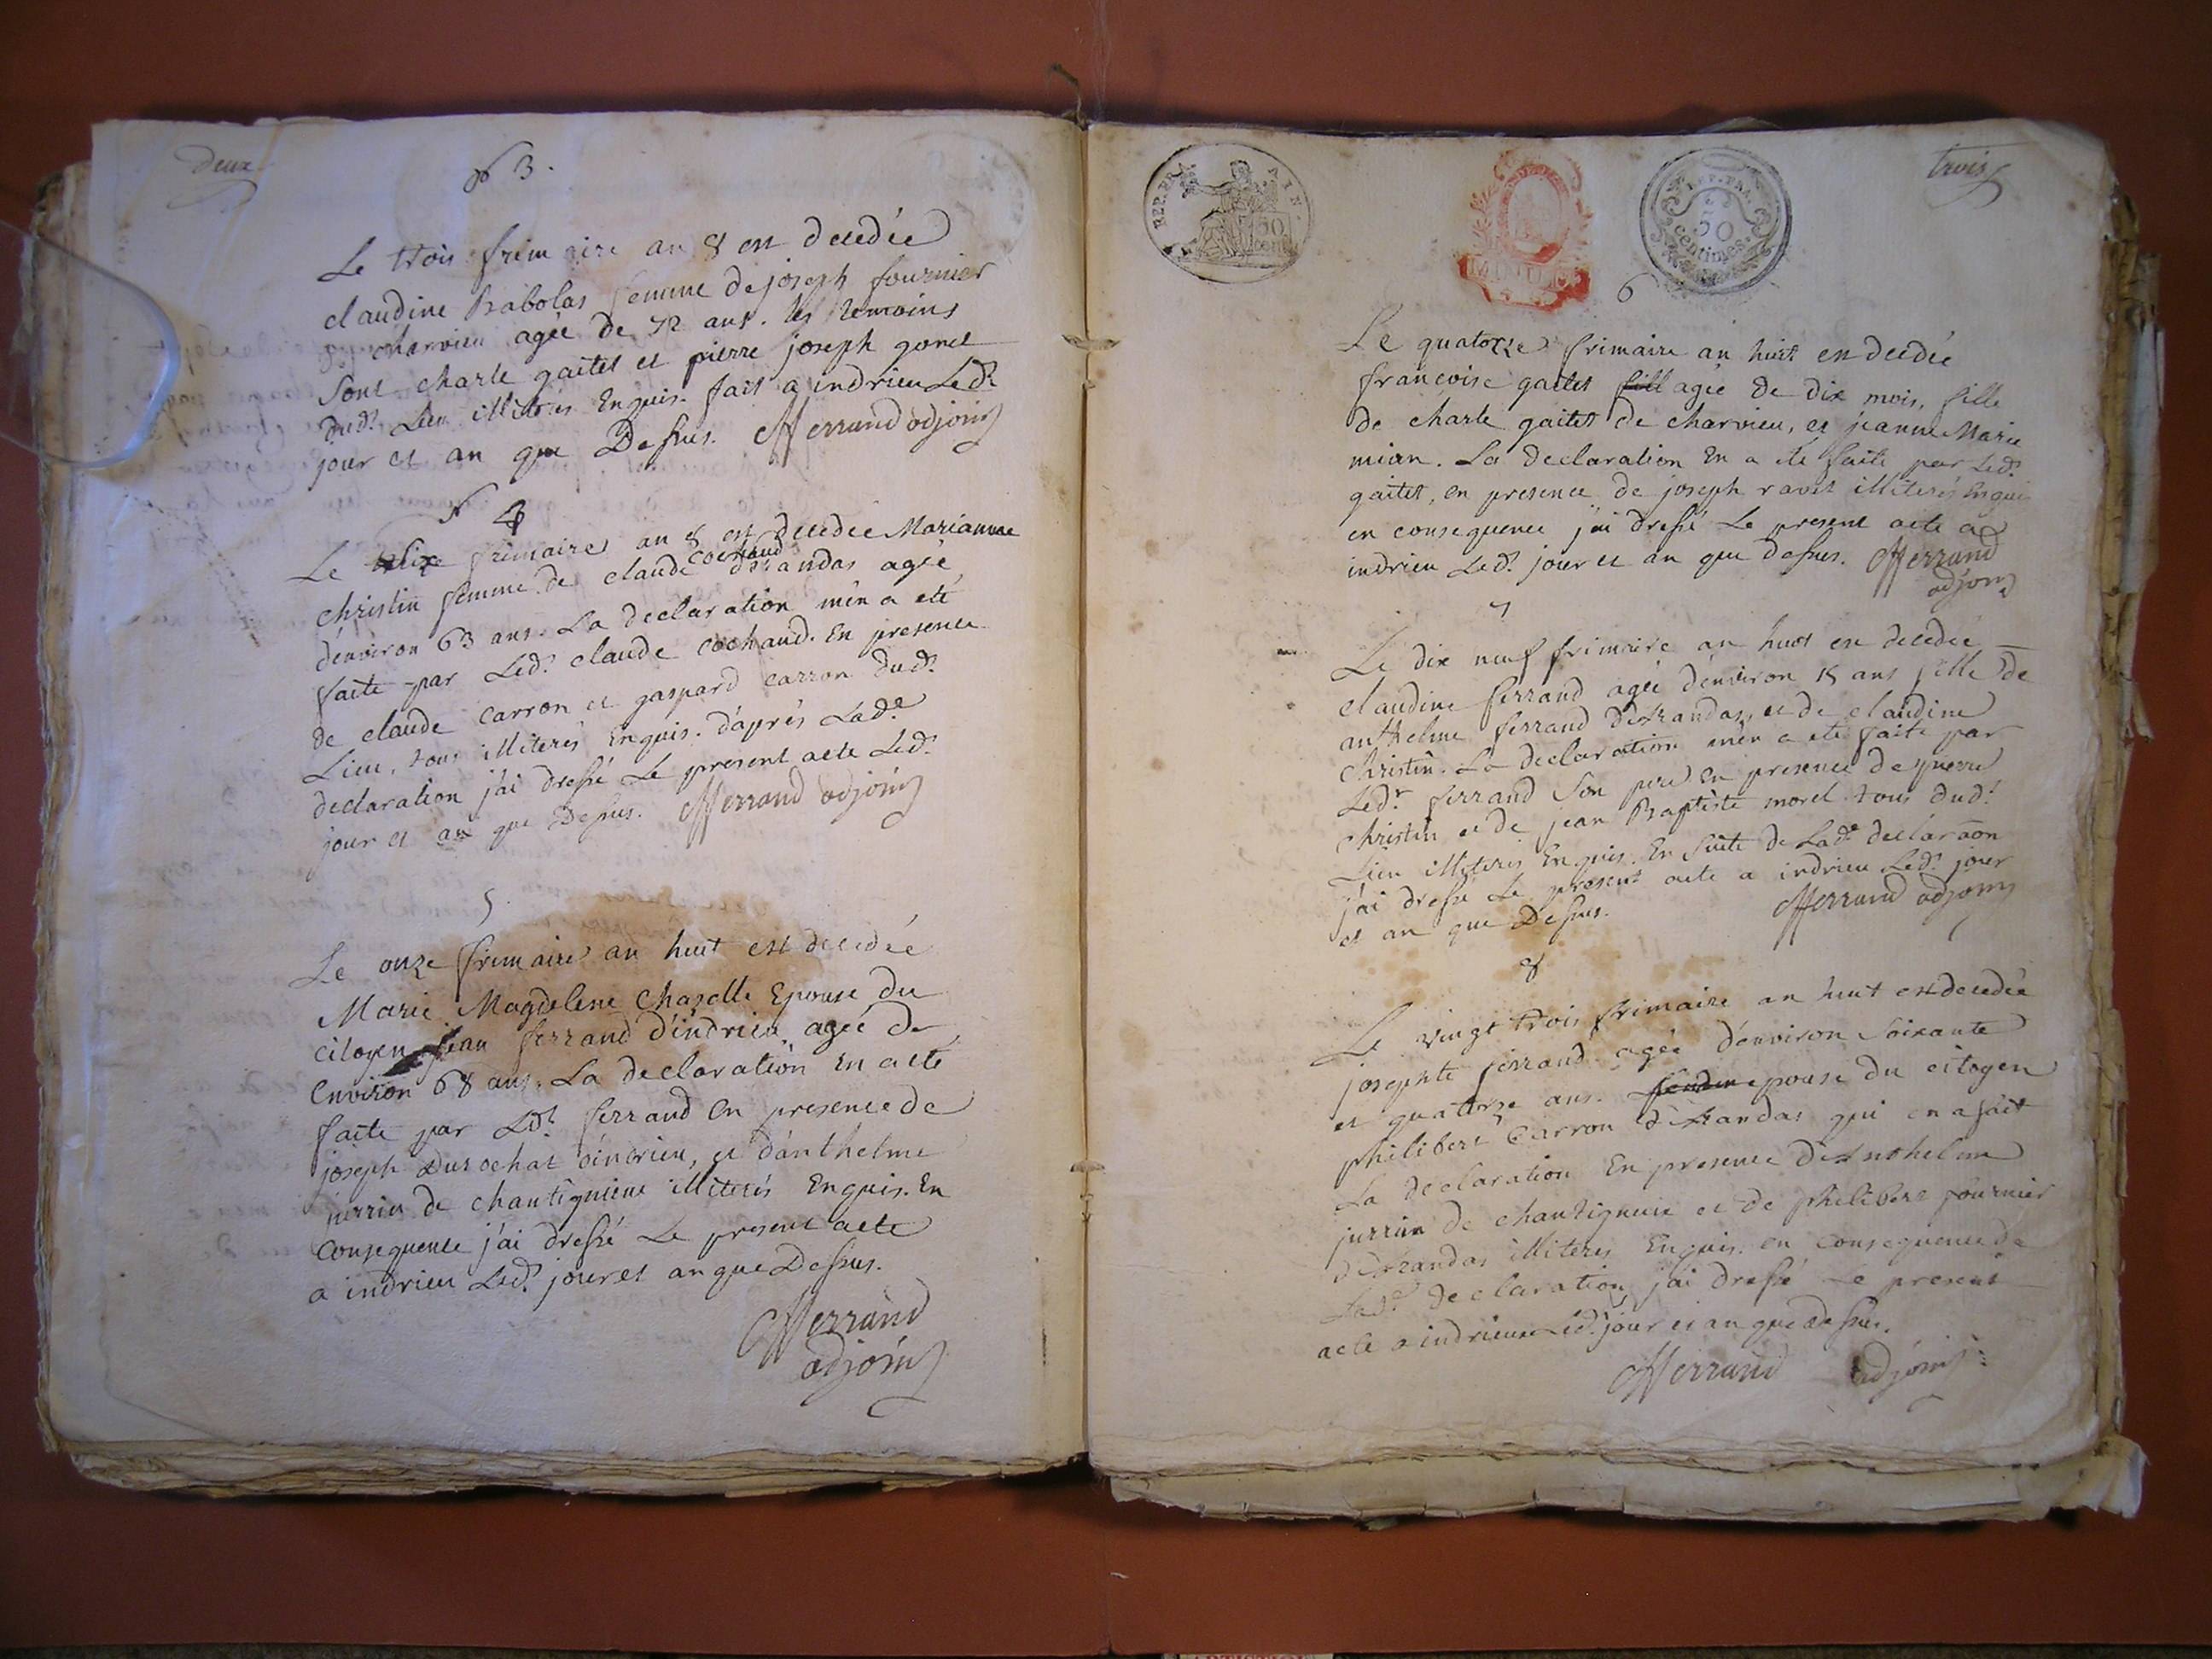 deux
№ 3.
Le trois frimaire an 8 est decedée
claudine Rabolas femme de joseph fournier
de charvieu agée de 72 ans. les temoins
Sont charle gaitet et pierre joseph gonet
dud.t Lieu illiterés Enquis. fait a indrieu Led.t
jour et an que Dessus. Mferrand adjoint
N 4
Le dix frimaire an 8 est decedée Marianne
cochaud
christin femme de claude d'arandas agée
d'environ 63 ans. La declaration m'en a eté
faite par Led.t claude cochaud. En presence
de claude carron et gaspard carron dud.t
Lieu, tous illiterés Enquis. d'après Lad.e
declaration j'ai dressé Le present acte Led.t
jour et an que Dessus. Mferrand adjoint
5.
Le onze frimaire an huit est decedée
Marie Magdelene Chazotte Epouse du
citoyen jean ferrand d'indrieu, agée de
Environ 68 ans. La declaration En a eté
faite par Led.t ferrand En presence de
joseph Durochat d'indrieu, et d'anthelme
jurrin de chantignieux illiterés Enquis. En
Consequence j'ai dressé Le present acte
a indrieu Led.t jour et an que Dessus.
Mferrand
adjoint
REP. FRA
A I N.
50
cent
REP. FRA.
50
centimes.
trois
6
Le quatorze frimaire an huit est decedée
francoise gaitet fill agée de dix mois, fille
de charle gaitet de charvieu, et jeanne Marie
mian. La declaration En a eté faite par Led.t
gaitet, en presence de joseph ravet illiterés Enquis
en consequence j'ai dressé Le present acte a
indrieu Led.t jour et an que dessus. Mferrand
adjoint
7
Le dix neuf frimaire an huit est decedée
claudine ferrand agée d'environ 15 ans fille de
anthelme ferrand D'arandas, et de claudine
christin. La declaration m'en a eté faite par
Led.t ferrand Son pere En presence de pierre
christin et de jean Baptiste morel tous dud.t
Lieu illiterés Enquis. En Suite de Lad.e declaraon
j'ai dressé Le present acte a indrieu Led.t jour
et an que Dessus. Mferrand adjoint
8
Le vingt trois frimaire an huit est decedée
josephte ferrand agée d'environ Soixante
et quatorze ans. epouse du citoyen
philibert Carron d'arandas qui en a fait
La declaration En presence d'anthelme
jurrin de chantignieux et de philibert fournier
d'arandas illiterés Enquis. en consequence de
Lad.e declaration j'ai dressé Le present
acte a indrieux Led.t jour et an que dessus.
Mferrand adjoint